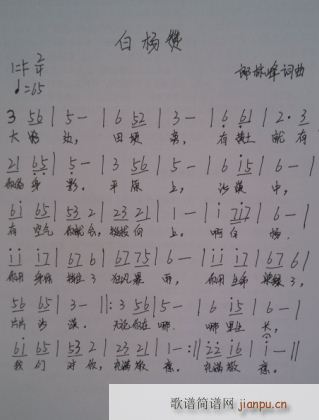 白杨赞
1=F 2/4
♩=65
邱林峰 词曲
3 56 | 5 - | 6 52 | 3 - | 6 61 | 2· 3
大路边, 田埂旁, 有黄土就有
21 65 | 5 - | 3 56 | 5 - | 6 i5 | 6 -
你的身影. 平原上, 沙漠中,
6i 65 | 53 2 | 23 21 | 1 - | i 7i7 | 6 -
有空气你就会 向上 啊白杨
ii i7 | 67 6 | 67 75 | 6 - | ii i7 | 67 6 |
你用身体挡住了狂风暴雨, 你用生命 了,
56 65 | 3 - ‖: 3 56 | 5 - | 6 i5 | 6 - |
片片沙漠. 无论你在哪 哪里生长,
6i 65 | 53 2 | 23 21 | 1 - :‖ 22 i6 | i - ‖
我们对你, 充满敬意. 充满敬意.
歌谱简谱网
jianpu.cn